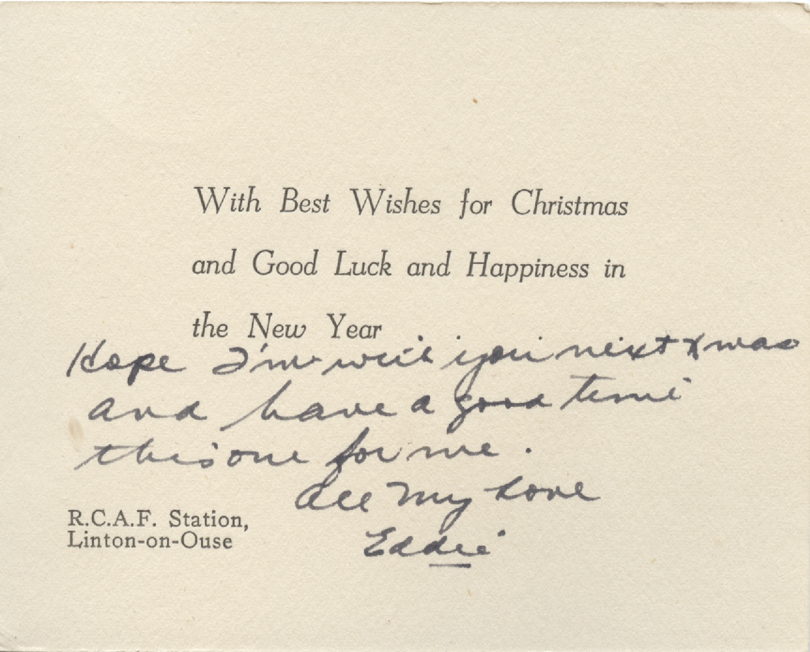 With Best Wishes for Christmas
and Good Luck and Happiness in
the New Year
Hope I'm with you next xmas
and have a good time
this one for me.
All my love
Eddie
R.C.A.F. Station,
Linton-on-Ouse